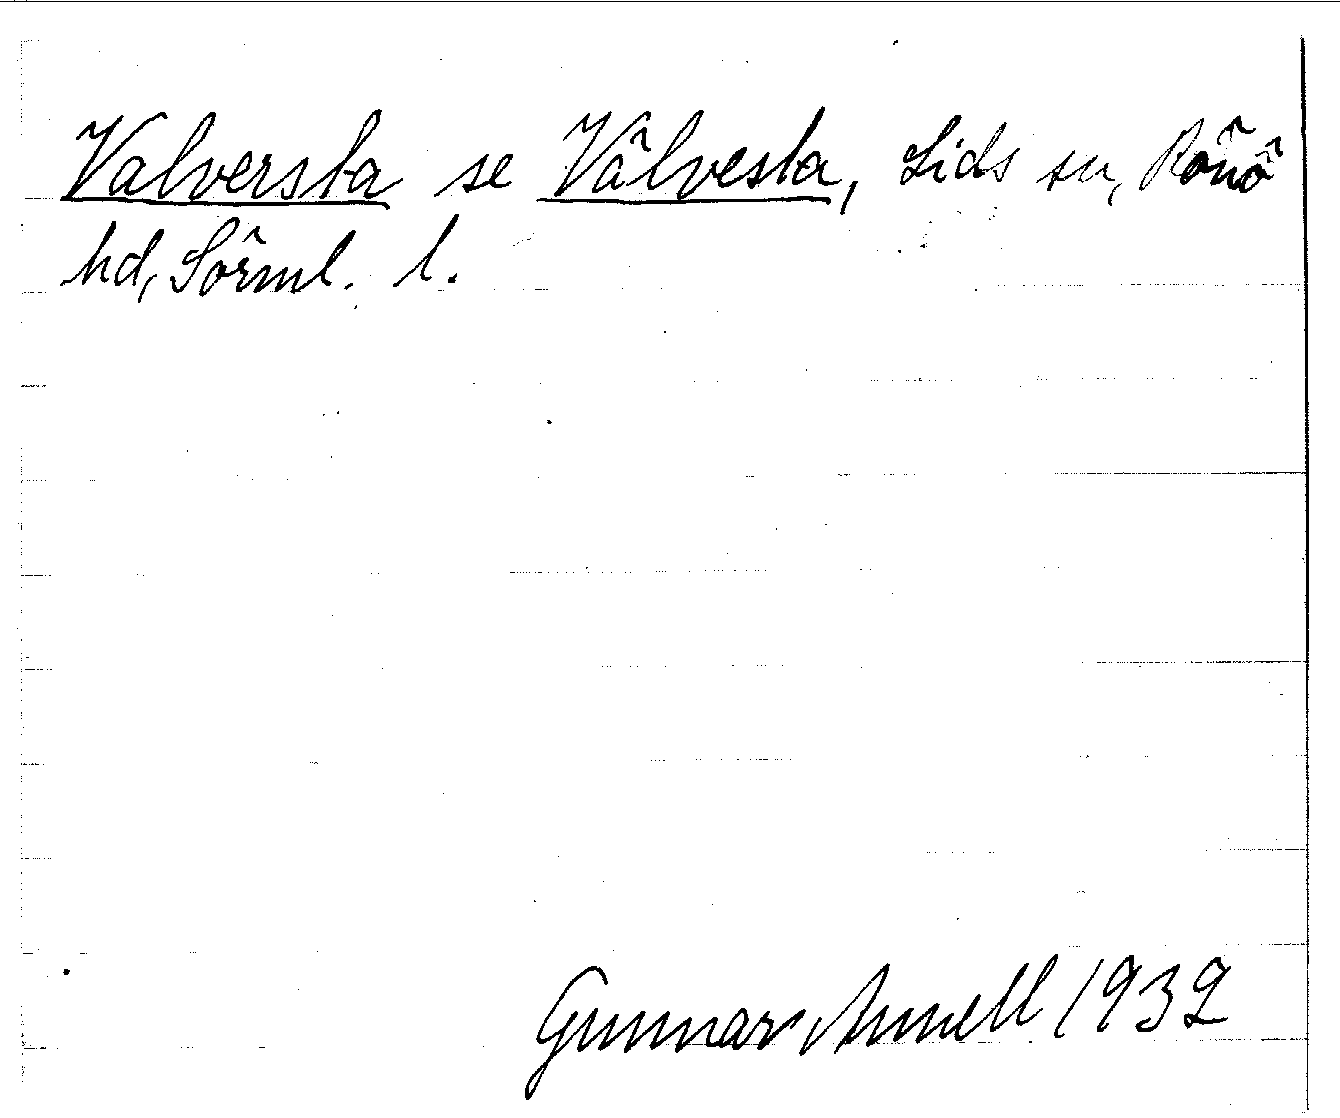 Valversta se Välvesta, Lids sn, Rönö
hd, Sörml. l.
Gunnar Annell 1932